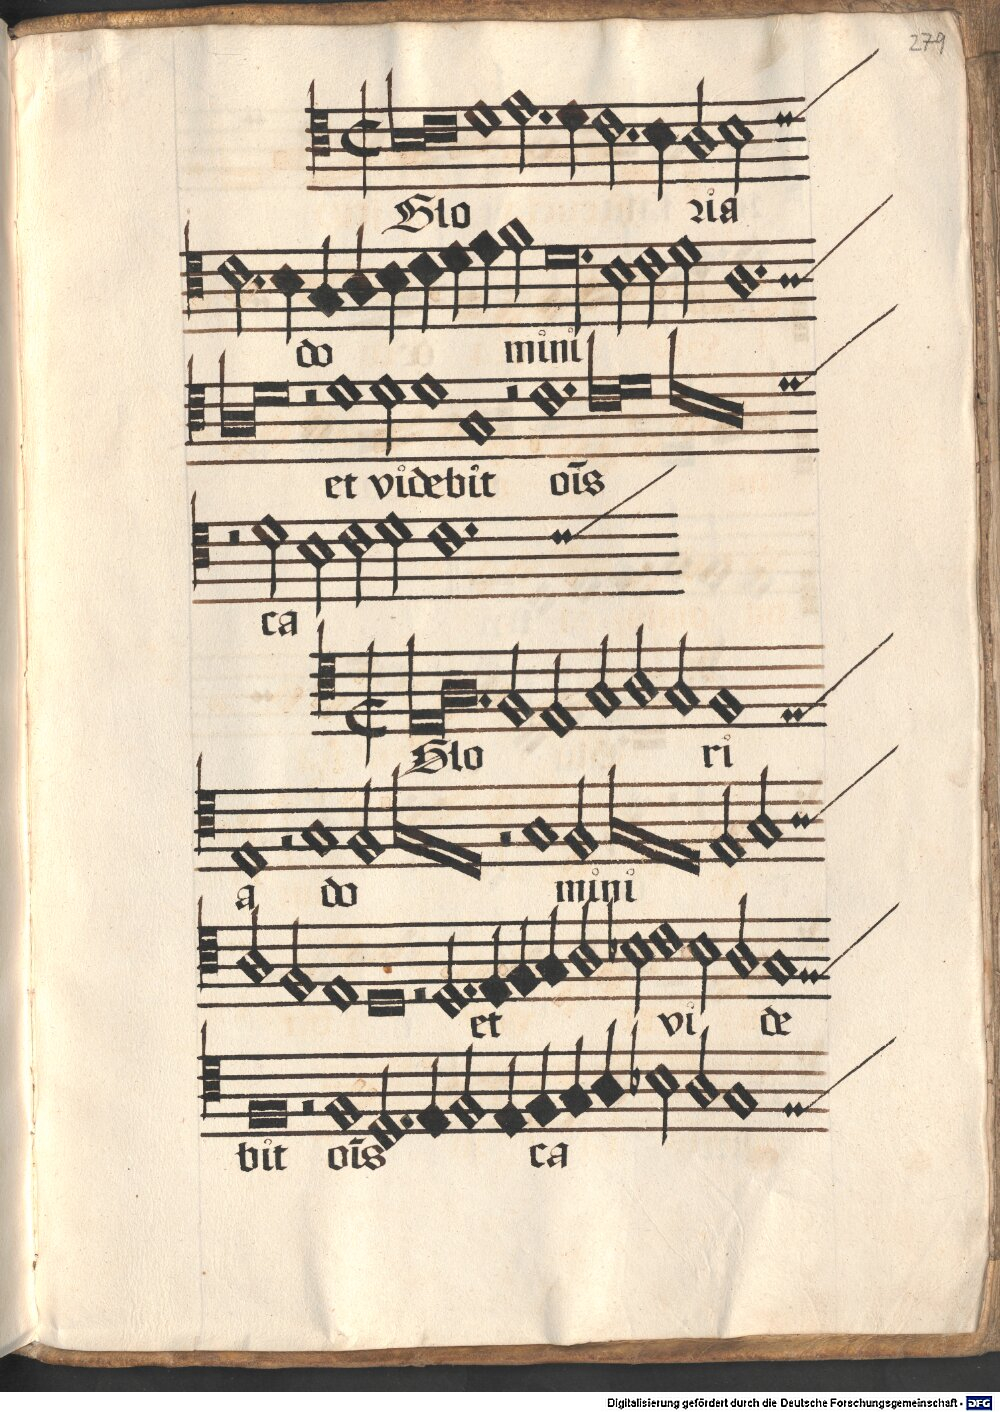 279
Glo ria
do mini
et videbit oīs
ca
Glo ri
a do mini
et vi de
bit oīs ca
Digitalisierung gefördert durch die Deutsche Forschungsgemeinschaft - DFG